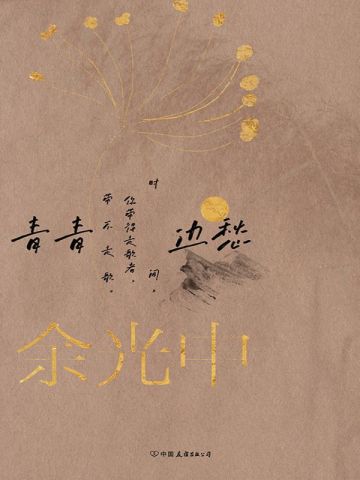 青青边愁
时间,
你带得走歌者,
带不走歌。
余光中
中国友谊出版公司